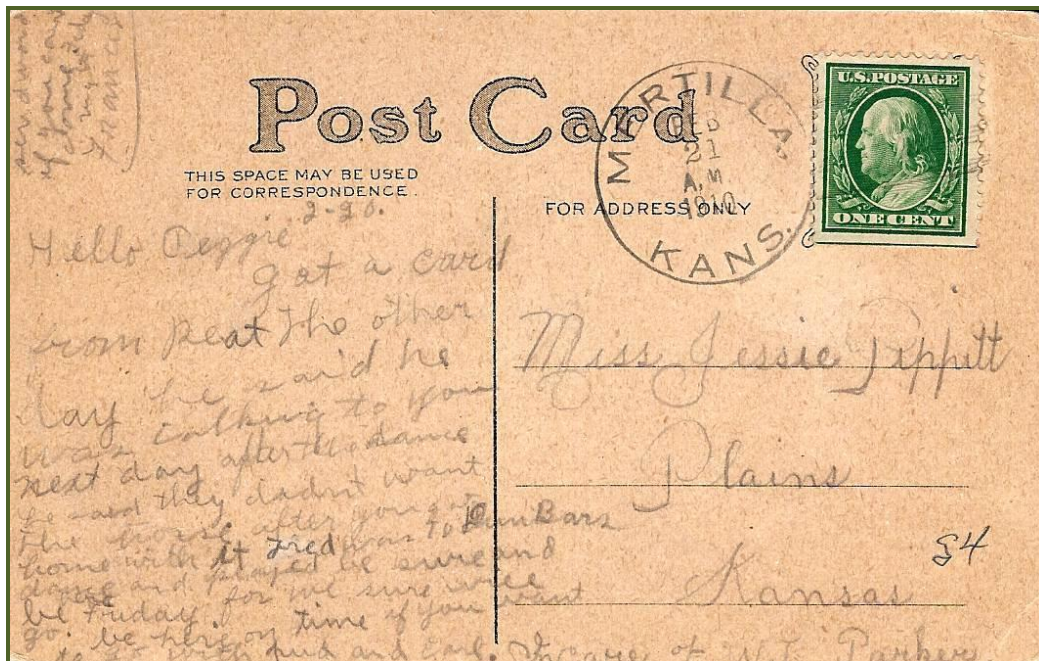 send word
if you can
come
Post Card
THIS SPACE MAY BE USED
FOR CORRESPONDENCE.
FOR ADDRESS ONLY
MERTILLA,
21
A.M.
1910
KANS.
U.S.POSTAGE
ONE CENT
2-20.
Hello Peggie
got a card
from Peat The other
day he said he
was talking to you
next day after the dance
he said they dadn't want
The horse after you
home with it Fred was to DunBars
dance and played be sure and
be for we sure
go. Friday. time if you want
be here on
to go with and Earl.
Miss Jessie Pippitt
Plains
Kansas
In care of W.L. Parker
54